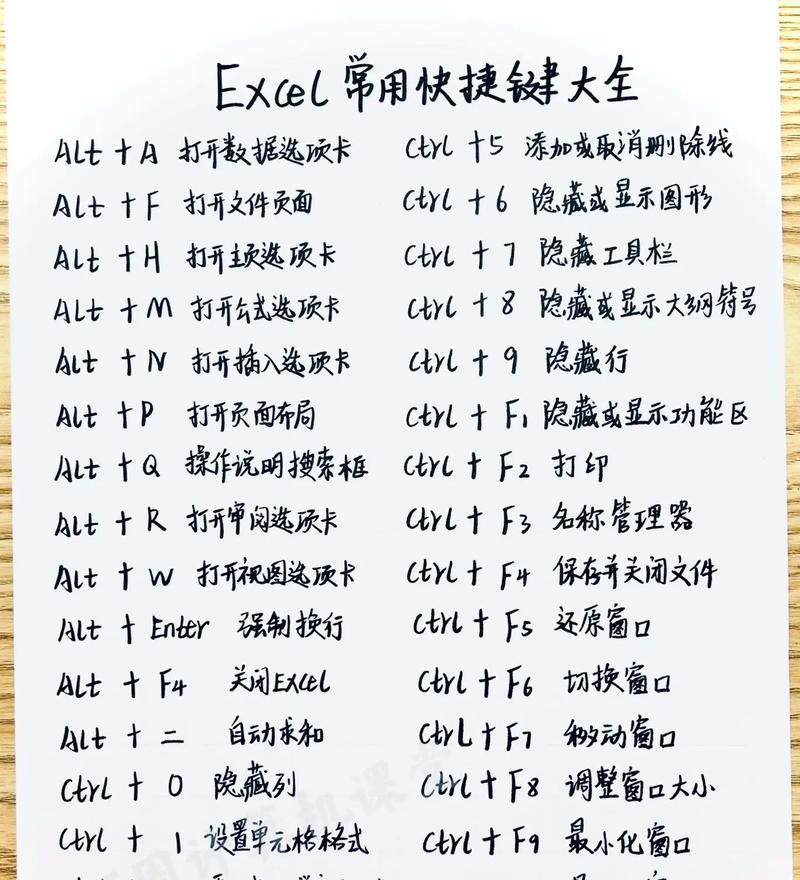 Excel常用快捷键大全
Alt + A 打开数据选项卡
Alt + F 打开文件页面
Alt + H 打开主页选项卡
Alt + M 打开公式选项卡
Alt + N 打开插入选项卡
Alt + P 打开页面布局
Alt + Q 操作说明搜索框
Alt + R 打开审阅选项卡
Alt + W 打开视图选项卡
Alt + Enter 强制换行
Alt + F4 关闭Excel
Alt + = 自动求和
Ctrl + 0 隐藏列
Ctrl + 1 设置单元格格式
Ctrl + 5 添加或取消删除线
Ctrl + 6 隐藏或显示图形
Ctrl + 7 隐藏工具栏
Ctrl + 8 隐藏或显示大纲符号
Ctrl + 9 隐藏行
Ctrl + F1 隐藏或显示功能区
Ctrl + F2 打印
Ctrl + F3 名称管理器
Ctrl + F4 保存并关闭文件
Ctrl + F5 还原窗口
Ctrl + F6 切换窗口
Ctrl + F7 移动窗口
Ctrl + F8 调整窗口大小
Ctrl + F9 最小化窗口